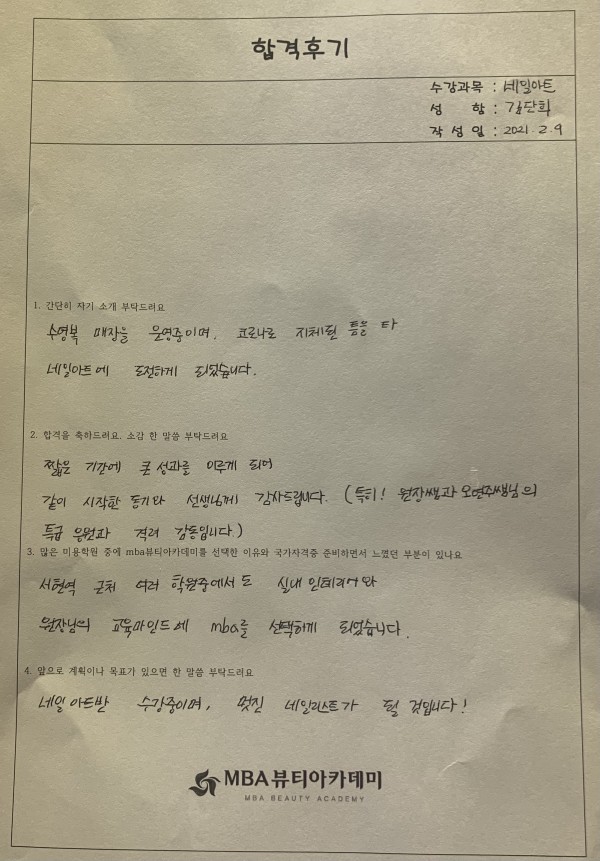 합격후기
수강과목 : 네일아트
성 함 : 김단희
작 성 일 : 2021. 2. 9
1. 간단히 자기 소개 부탁드려요
수영복 매장을 운영중이며, 코로나로 지체된 틈을 타
네일아트에 도전하게 되었습니다.
2. 합격을 축하드려요. 소감 한 말씀 부탁드려요
짧은 기간에 큰 성과를 이루게 되어
같이 시작한 동기와 선생님께 감사드립니다. (특히! 원장쌤과 오연주쌤님의
특급 응원과 격려 감동입니다.)
3. 많은 미용학원 중에 mba뷰티아카데미를 선택한 이유와 국가자격증 준비하면서 느꼈던 부분이 있나요
서현역 근처 여러 학원중에서도 실내 인테리어와
원장님의 교육마인드에 mba를 선택하게 되었습니다.
4. 앞으로 계획이나 목표가 있으면 한 말씀 부탁드려요
네일 아트반 수강중이며, 멋진 네일리스트가 될 것입니다!
MBA뷰티아카데미
MBA BEAUTY ACADEMY